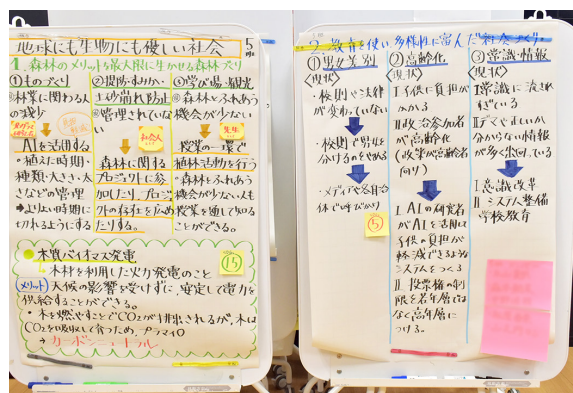 地球にも生物にも優しい社会
5
1.森林のメリットを最大限に生かせる森林づくり
①ものづくり
◎林業に関わる人の減少
AIを活用する
・植えた時期・
種類・大きさ・太
さなどの管理
→よりよい時期に
切れるようにする
②堤防・
土砂崩れ防止
◎管理されていない
社会人
森林に関する
プロジェクトに参
加したり、プロジェ
クトの存在を広め
たりする。
③学び場・観光
◎森林とふれあう
機会が少ない
学生
授業の一環で
植林活動を行う
・森林とふれあう
機会が少ない人も
授業を通して知る
ことができる。
木質バイオマス発電
15
→木材を利用した火力発電のこと
メリット
天候の影響を受けずに、安定して電力を
供給することができる。
・木を燃やすことでCO2が排出されるが、木は
CO2を吸収して育つため、プラマイ0
→カーボンニュートラル
2.教育を使い多様性に富んだ社会づくり
①男女差別
〈現状〉
・校則や法律
が変わっていない
・校則で男女
分けるのをやめる
・メディアや各自治
体で呼びかけ
15
②高齢化
〈現状〉
Ⅰ子供に負担が
かかる
Ⅱ政治参加者
が高齢化
(政策が高齢者
向け)
Ⅰ.AIの研究者
がAIを活用して
子供の負担が
軽減できるような
システムをつくる
Ⅱ 投票権の制
限を若年層では
なく高年層に
つける。
③常識・情報
〈現状〉
Ⅰ常識に流され
すぎている
Ⅱデマや正しいか
分からない情報
が多く出回っている
Ⅰ意識改革
Ⅱシステム整備
学校教育